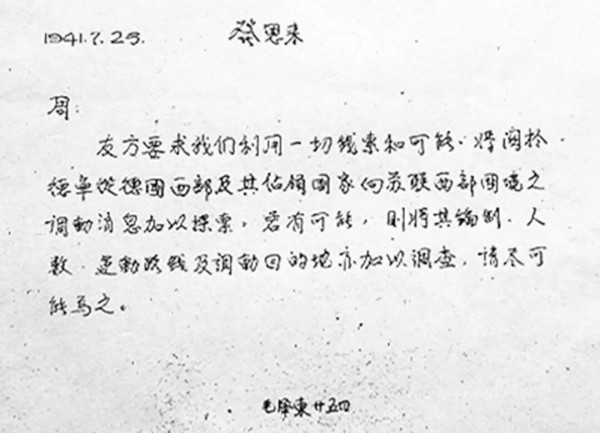 1941.7.25. 發恩来
周:
友方要求我们利用一切线索和可能.将関於
德军從德國西部及其佔领国家向苏联西部国境之
调動消息加以探索,若有可能,则将其编制.人
数.运動路线及调動目的地亦加以调查,请尽可
能为之。
毛泽東廿五日